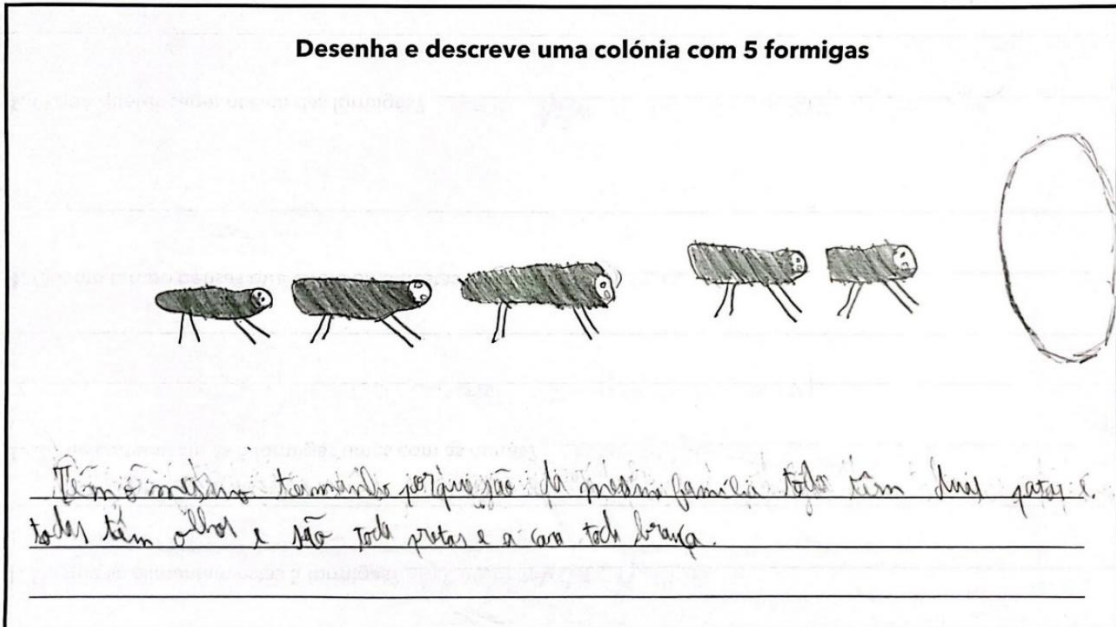 Desenha e descreve uma colónia com 5 formigas
Têm o mesmo tamanho porque são da mesma família todas têm duas patas e
todas têm olhos e são toda pretas e a cara toda branca.